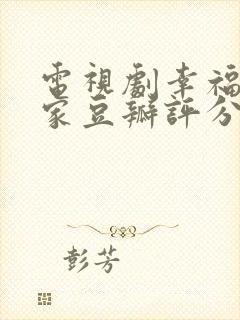 電視劇幸福
家豆瓣評分
彭芳